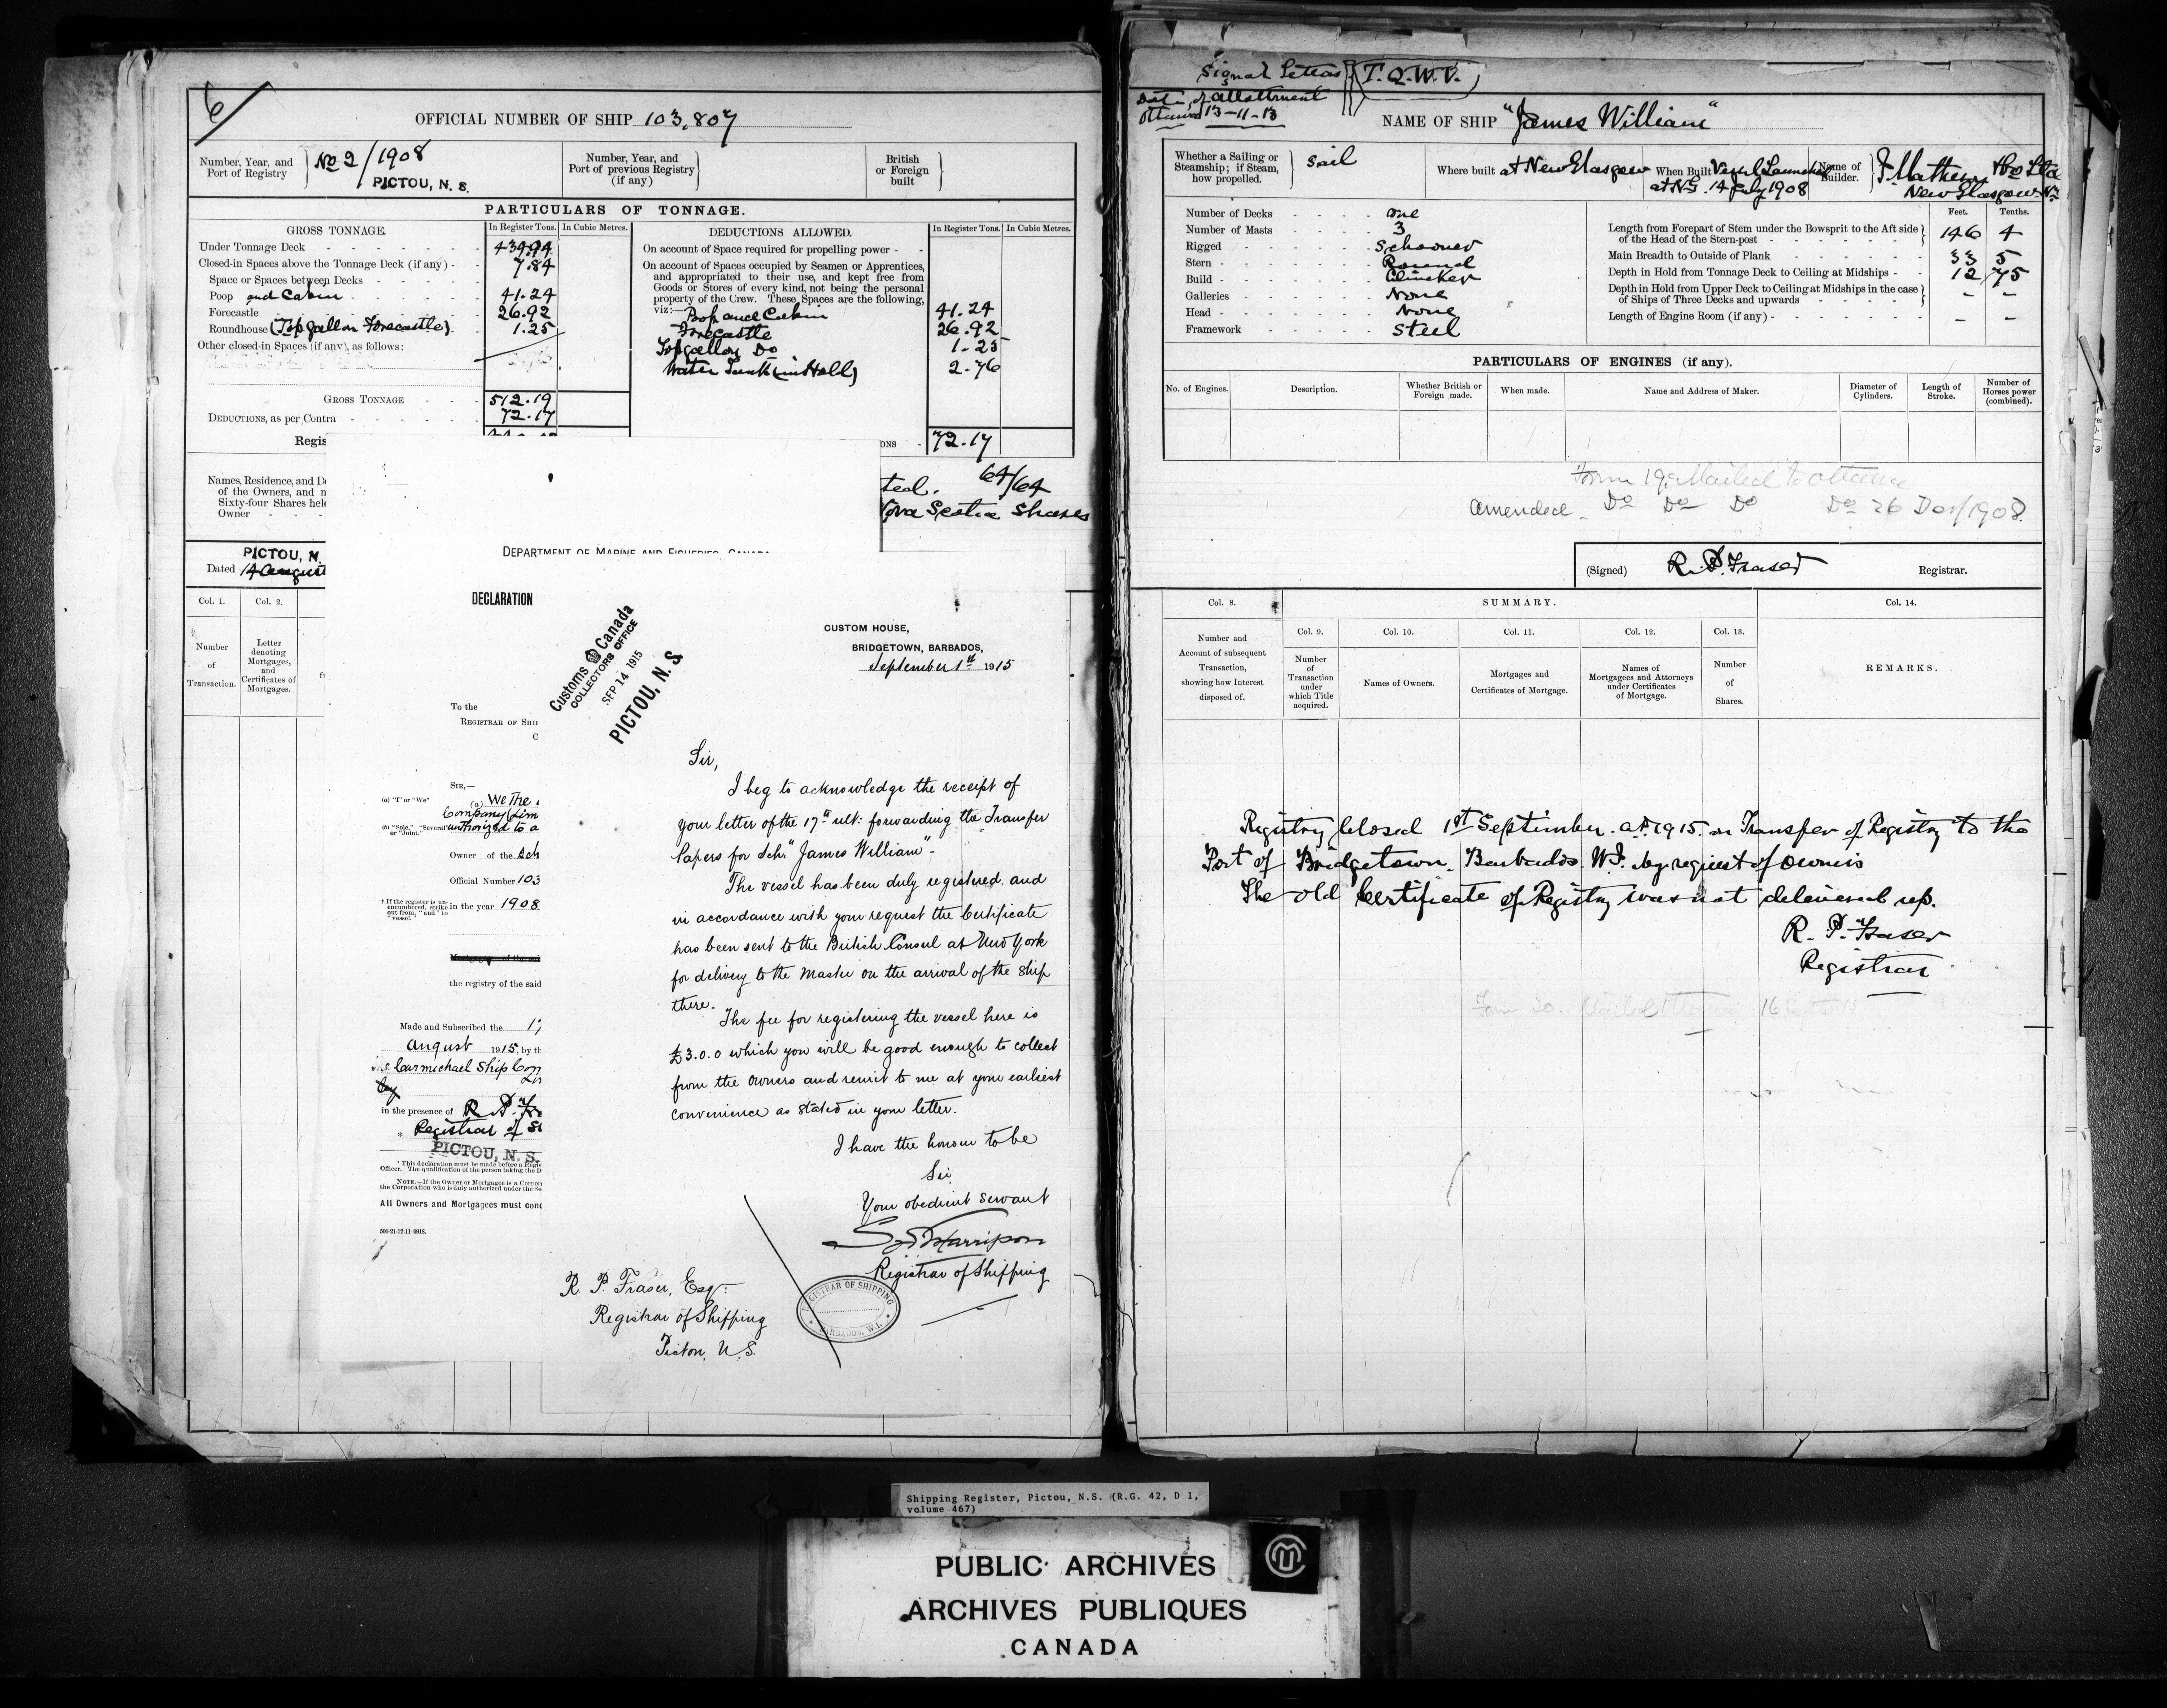 6
OFFICIAL NUMBER OF SHIP 103,807
Number, Year, and Port of Registry No 2/1908 PICTOU, N. S.
Number, Year, and Port of previous Registry (if any)
British or Foreign built
PARTICULARS OF TONNAGE.
GROSS TONNAGE. In Register Tons. In Cubic Metres.
Under Tonnage Deck
Closed-in Spaces above the Tonnage Deck (if any) 7.84
Space or Spaces between Decks
Poop and Cabin 41.24
Forecastle 26.92
Roundhouse (Topgallan Forecastle) 1.25
Other closed-in Spaces (if any), as follows:
GROSS TONNAGE 512.19
DEDUCTIONS, as per Contra 72.17
Regis
DEDUCTIONS ALLOWED. In Register Tons. In Cubic Metres.
On account of Space required for propelling power
On account of Spaces occupied by Seamen or Apprentices,
and appropriated to their use, and kept free from
Goods or Stores of every kind, not being the personal
property of the Crew. These Spaces are the following,
viz:— Poop and Cabin 41.24
Forecastle 26.92
Topgallan Do 1.25
Water Tank (in Hold) 2.76
ONS 72.17
Names, Residence, and De
of the Owners, and n
Sixty-four Shares held
Owner
ted. 64/64
Nova Scotia Shares
PICTOU, N.
Dated 14 August
Col. 1. Col. 2.
Number of Transaction.
Letter denoting Mortgages, and Certificates of Mortgages.
DEPARTMENT OF MARINE AND FISHERIES, CANADA
DECLARATION
To the
REGISTRAR OF SHI
SIR,—
(a) "I" or "We"
(a) We The
Company (Lim
(b) "Sole," "Several" or "Joint."
authorized to a
Owner of the Sch
Official Number 103
† If the register is un-
encumbered, strike
out from, "and" to
"vessel."
in the year 1908
the registry of the said
Made and Subscribed the 17
August 1915, by th
Carmichael Ship Com
in the presence of R. P. Fr
Registrar of S
PICTOU, N. S.
* This declaration must be made before a Regis
Officer. The qualification of the person taking the D
NOTE.—If the Owner or Mortgagee is a Corpor
the Corporation who is duly authorized under the Se
All Owners and Mortgagees must conc
500-21-12-11-9918.
Customs Canada
COLLECTORS OFFICE
SEP 14 1915
PICTOU, N. S.
CUSTOM HOUSE,
BRIDGETOWN, BARBADOS,
September 1st 1915
Sir,
I beg to acknowledge the receipt of
your letter of the 17th ult: forwarding the Transfer
Papers for Sch: "James William".
The vessel has been duly registered, and
in accordance with your request the Certificate
has been sent to the British Consul at New York
for delivery to the Master on the arrival of the ship
there.
The fee for registering the vessel here is
£3.0.0 which you will be good enough to collect
from the owners and remit to me at your earliest
convenience as stated in your letter.
I have the honour to be
Sir
Your obedient servant
Harrison
Registrar of Shipping
REGISTRAR OF SHIPPING
BARBADOS, W.I.
R. P. Fraser, Esq:
Registrar of Shipping
Pictou, N.S.
Signal Letters T.Q.W.V.
Date of allottment
Ottawa 13-11-13
NAME OF SHIP "James William"
Whether a Sailing or Steamship; if Steam, how propelled. Sail
Where built at New Glasgow
When Built Vessel Launched at N.G. 14 July 1908
Name of Builder. J. Matheson & Co Ltd New Glasgow N.S.
Number of Decks one
Number of Masts 3
Rigged Schooner
Stern Round
Build Clincker
Galleries None
Head None
Framework Steel
Feet. Tenths.
Length from Forepart of Stem under the Bowsprit to the Aft side
of the Head of the Stern-post 146 4
Main Breadth to Outside of Plank 33 5
Depth in Hold from Tonnage Deck to Ceiling at Midships 12 75
Depth in Hold from Upper Deck to Ceiling at Midships in the case
of Ships of Three Decks and upwards – –
Length of Engine Room (if any) – –
PARTICULARS OF ENGINES (if any).
No. of Engines. Description. Whether British or Foreign made. When made. Name and Address of Maker. Diameter of Cylinders. Length of Stroke. Number of Horses power (combined).
Form 19 Mailed to Ottawa
Amended Do Do Do Do 26 Dec/1908.
(Signed) R. P. Fraser Registrar.
Col. 8. SUMMARY. Col. 14.
Col. 9. Col. 10. Col. 11. Col. 12. Col. 13.
Number and Account of subsequent Transaction, showing how Interest disposed of.
Number of Transaction under which Title acquired.
Names of Owners.
Mortgages and Certificates of Mortgage.
Names of Mortgagees and Attorneys under Certificates of Mortgage.
Number of Shares.
REMARKS.
Registry closed 1st September A.D. 1915 on Transfer of Registry to the
Port of Bridgetown, Barbados W.I. by request of owners
The old Certificate of Registry was not delivered up.
R. P. Fraser
Registrar
Shipping Register, Pictou, N.S. (R.G. 42, D 1,
volume 467)
PUBLIC ARCHIVES
ARCHIVES PUBLIQUES
CANADA